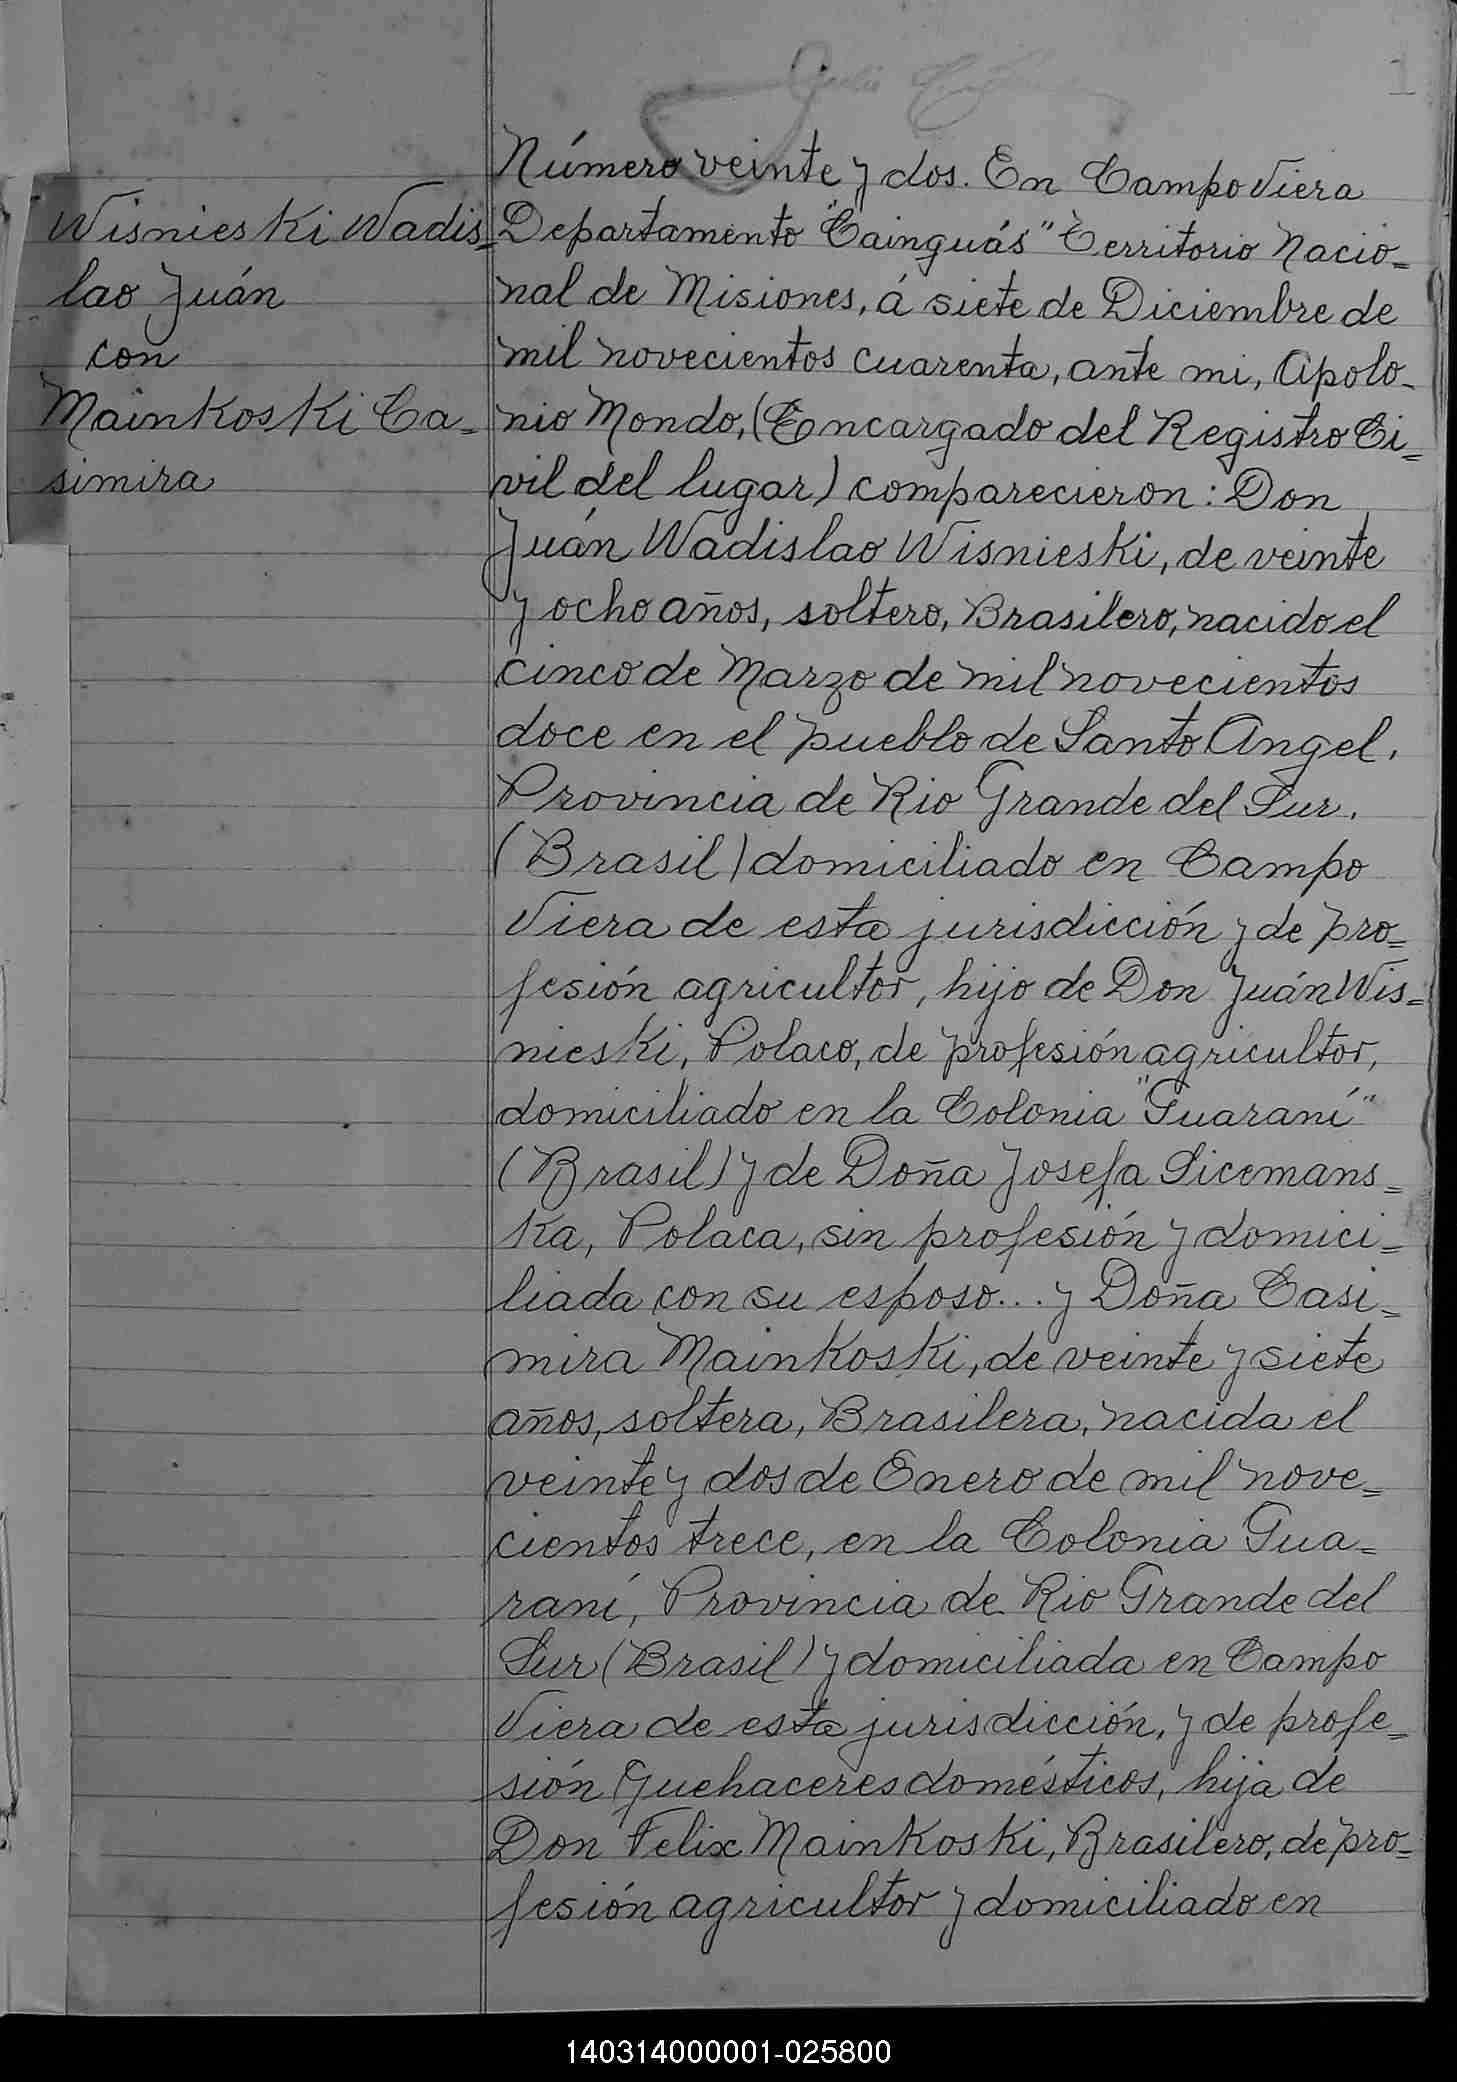 1
Wisnieski Wadis=
lao Juán
con
Mainkoski Ca=
simira
Número veinte y dos. En Campo Viera
Departamento "Cainguás" Territorio Nacio=
nal de Misiones, á siete de Diciembre de
mil novecientos cuarenta, ante mi, Apolo-
nio Mondo, (Encargado del Registro Ci=
vil del lugar) comparecieron: Don
Juán Wadislao Wisnieski, de veinte
y ocho años, soltero, Brasilero, nacido el
cinco de Marzo de mil novecientos
doce en el pueblo de Santo Angel,
Provincia de Rio Grande del Sur.
(Brasil) domiciliado en Campo
Viera de esta jurisdicción y de pro=
fesión agricultor, hijo de Don Juán Wis=
nieski, Polaco, de profesión agricultor,
domiciliado en la Colonia "Guaraní"
(Brasil) y de Doña Josefa Sicemans=
ka, Polaca, sin profesión y domici=
liada con su esposo... y Doña Casi=
mira Mainkoski, de veinte y siete
años, soltera, Brasilera, nacida el
veinte y dos de Enero de mil nove=
cientos trece, en la Colonia Gua=
raní, Provincia de Rio Grande del
Sur (Brasil) y domiciliada en Campo
Viera de esta jurisdicción, y de profe=
sión quehaceres domésticos, hija de
Don Felix Mainkoski, Brasilero, de pro=
fesión agricultor y domiciliado en
140314000001-025800